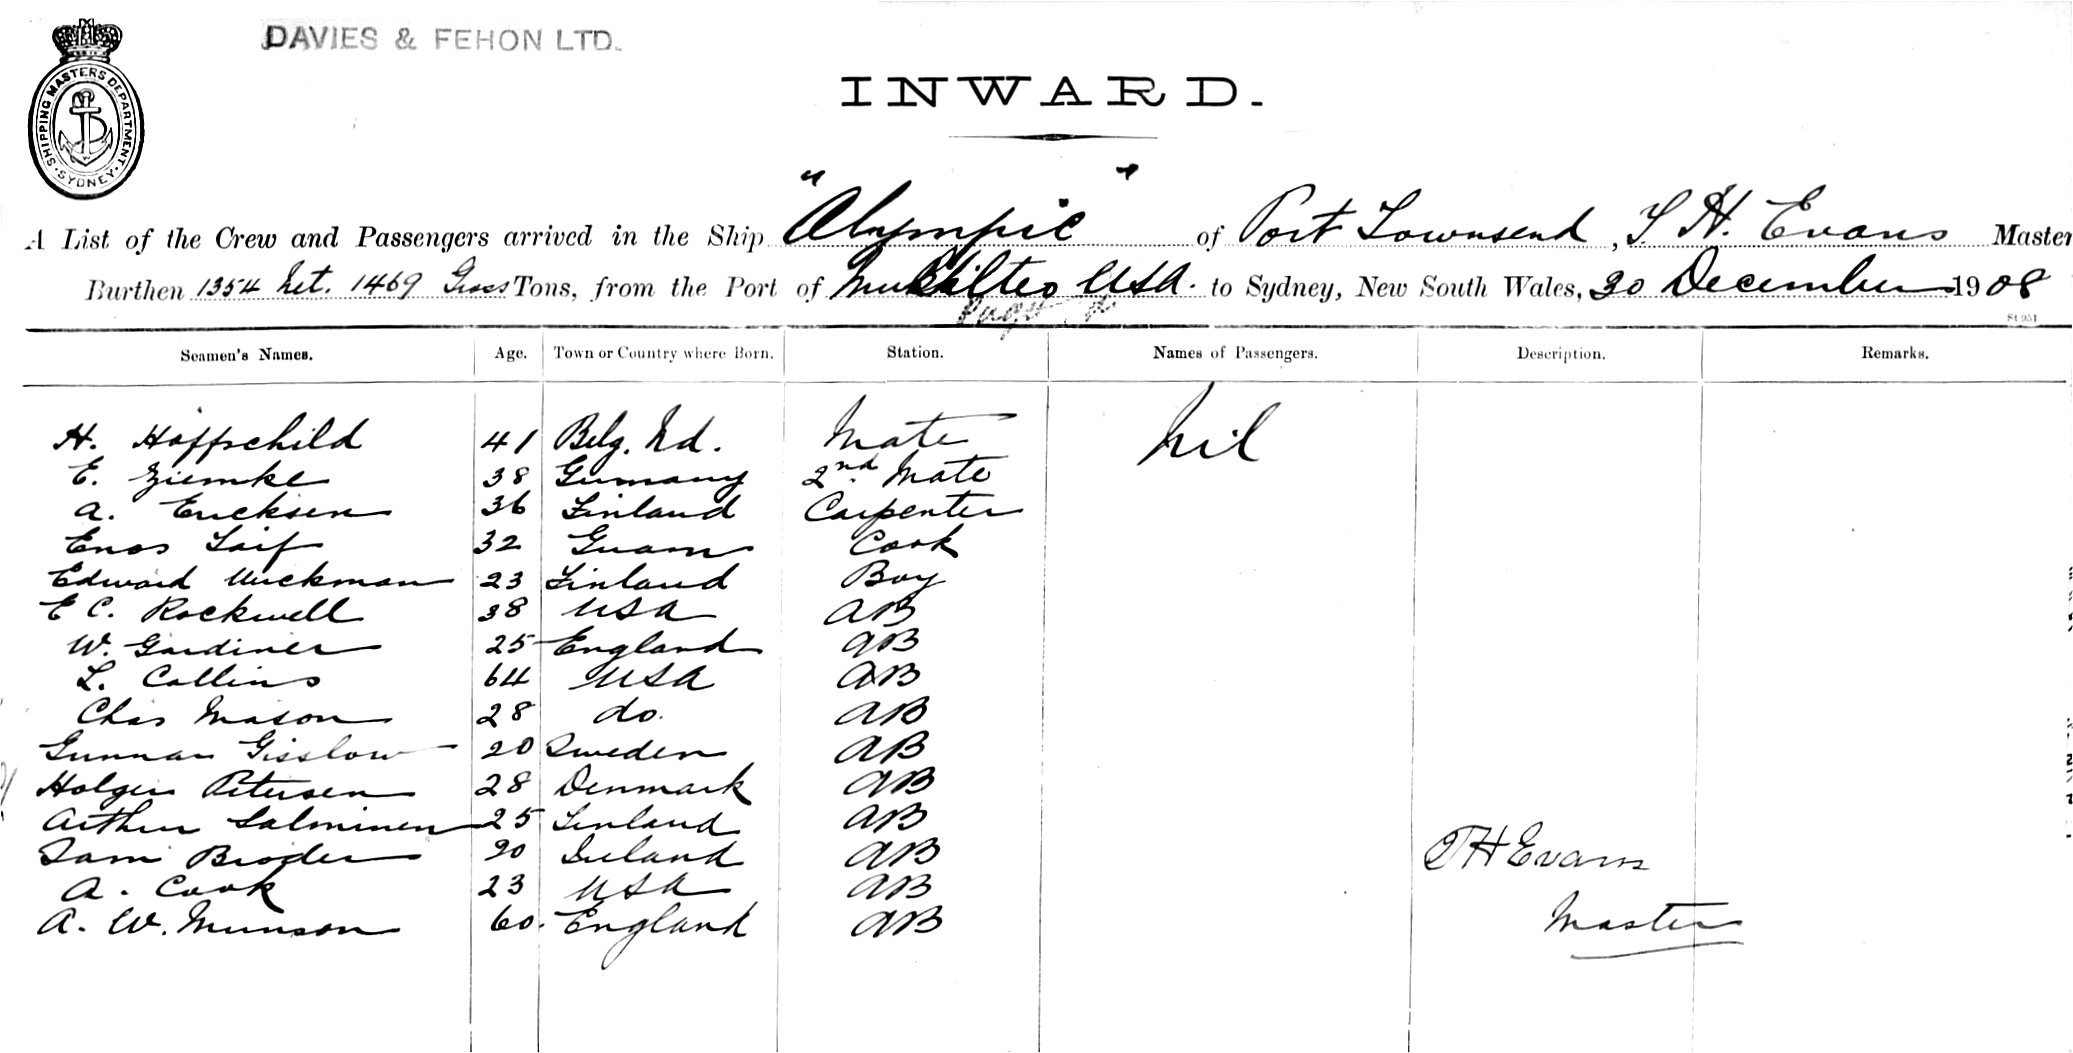 DAVIES & FEHON LTD.
SHIPPING MASTERS DEPARTMENT · SYDNEY ·
INWARD.
A List of the Crew and Passengers arrived in the Ship "Olympic" of Port Townsend, T. H. Evans Master
Burthen 1354 Net. 1469 Gross Tons, from the Port of Mukilteo USA. to Sydney, New South Wales, 30 December 1908
Puget
St 951
Seamen's Names. Age. Town or Country where Born. Station. Names of Passengers. Description. Remarks.
H. Hoffschild 41 Belg. Nd. Mate Nil
E. Ziemke 38 Germany 2nd. Mate
A. Ericksen 36 Finland Carpenter
Enos 32 Guam Cook
Edward 23 Finland Boy
E C. Rockwell 38 USA AB
W. Gardiner 25 England AB
L. Collins 64 USA AB
Chas Mason 28 do. AB
Gunnar Gisslow 20 Sweden AB
Holger Petersen 28 Denmark AB
Arthur Salminen 25 Finland AB
Sam Broder 20 Ireland AB TH Evans
A. Cook 23 USA AB
A. W. Munson 60. England AB Master